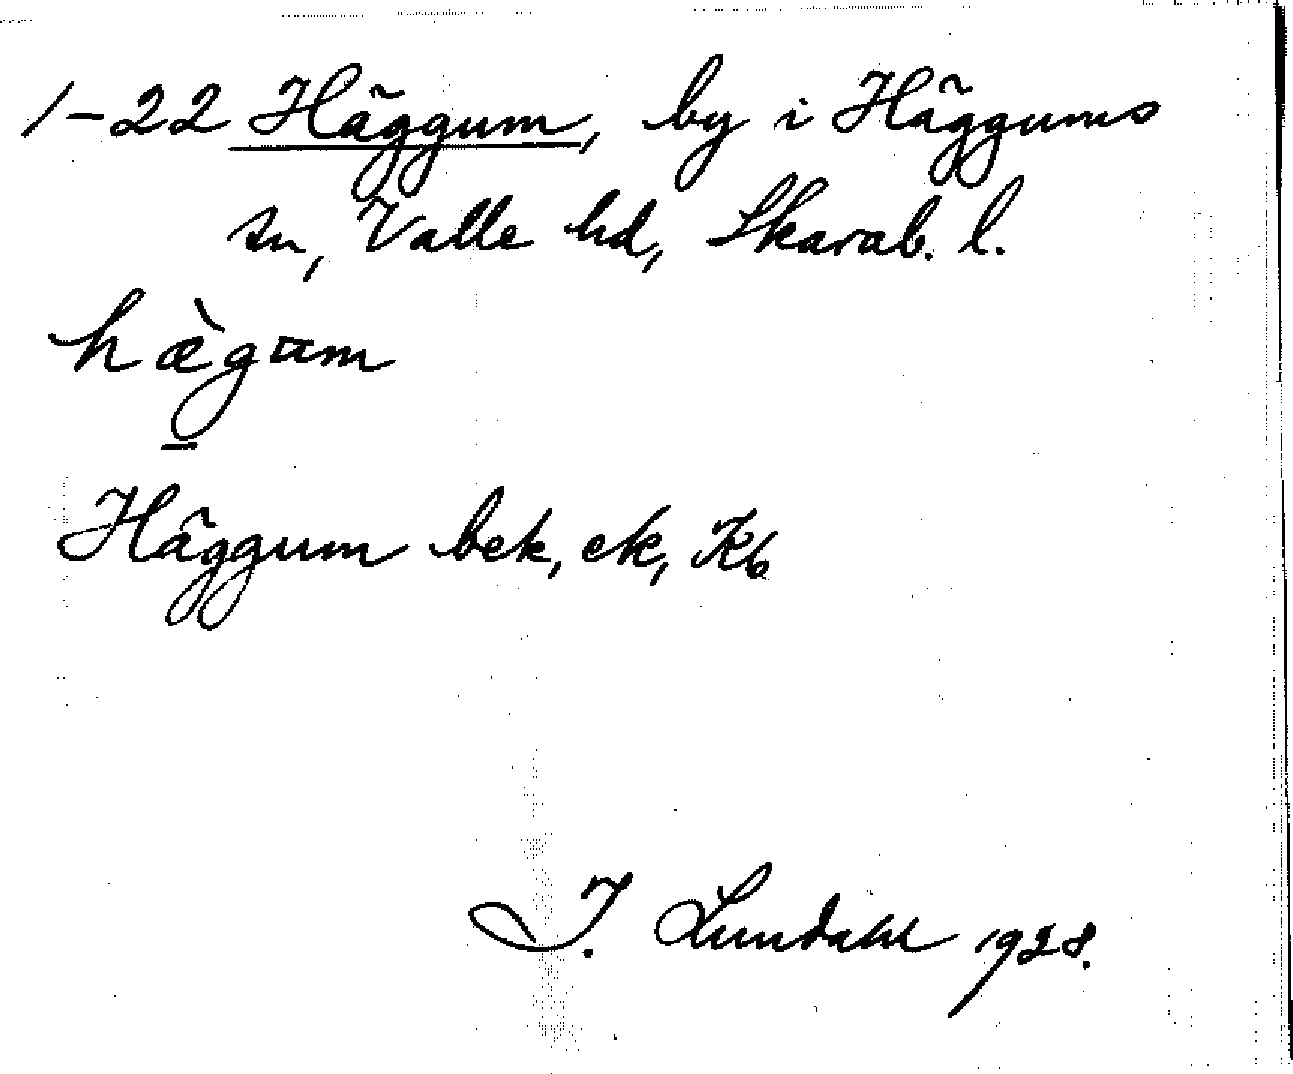 1-22 Häggum, by i Häggums
sn, Valle hd, Skarab. l.
hæ̀g̱um
Häggum bek, ek, Kb
I. Lundahl 1928.